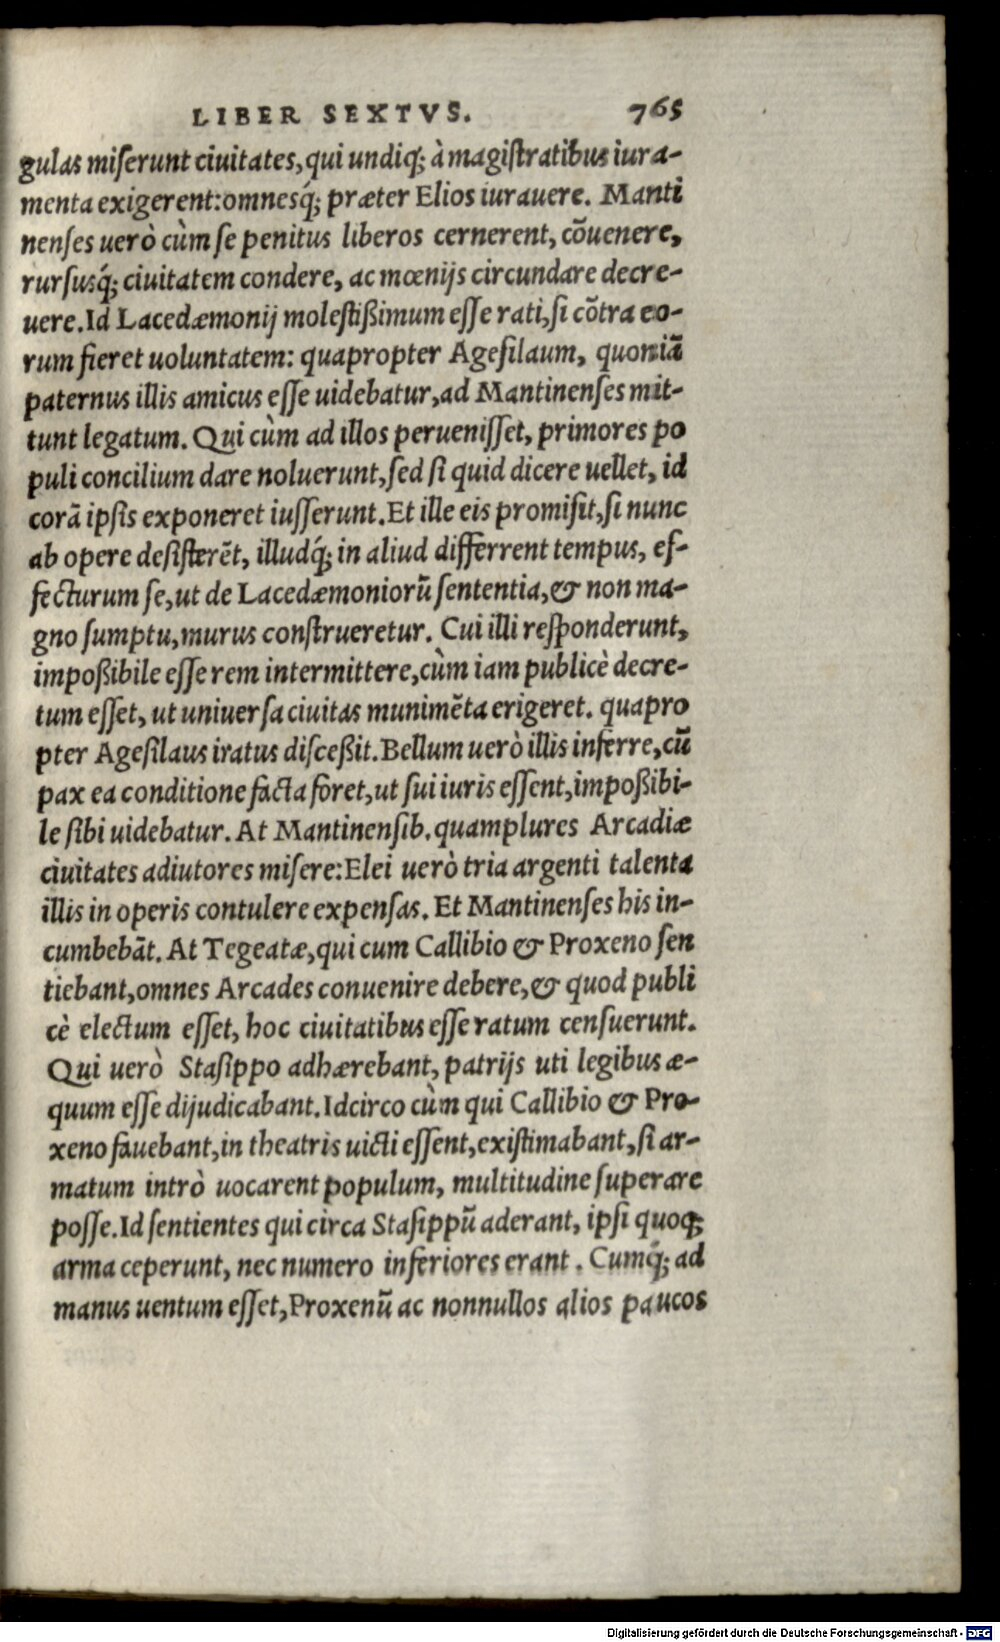 LIBER SEXTVS. 765
gulas miſerunt ciuitates, qui undiq́; à magiſtratibus iura-
menta exigerent: omnesq́; præter Elios iurauere. Manti
nenſes uerò cùm ſe penitus liberos cernerent, cõuenere,
rurſusq́; ciuitatem condere, ac mœnijs circundare decre-
uere. Id Lacedæmonij moleſtißimum eſſe rati, ſi cõtra eo-
rum fieret uoluntatem: quapropter Ageſilaum, quoniã
paternus illis amicus eſſe uidebatur, ad Mantinenſes mit-
tunt legatum. Qui cùm ad illos perueniſſet, primores po
puli concilium dare noluerunt, ſed ſi quid dicere uellet, id
corã ipſis exponeret iuſſerunt. Et ille eis promiſit, ſi nunc
ab opere deſiſterẽt, illudq́; in aliud differrent tempus, ef-
fecturum ſe, ut de Lacedæmoniorũ ſententia, & non ma-
gno ſumptu, murus conſtrueretur. Cui illi reſponderunt,
impoßibile eſſe rem intermittere, cùm iam publicè decre-
tum eſſet, ut uniuerſa ciuitas munimẽta erigeret. quapro
pter Ageſilaus iratus diſceßit. Bellum uerò illis inferre, cũ
pax ea conditione facta foret, ut ſui iuris eſſent, impoßibi-
le ſibi uidebatur. At Mantinenſib. quamplures Arcadiæ
ciuitates adiutores miſere: Elei uerò tria argenti talenta
illis in operis contulere expenſas. Et Mantinenſes his in-
cumbebãt. At Tegeatæ, qui cum Callibio & Proxeno ſen
tiebant, omnes Arcades conuenire debere, & quod publi
cè electum eſſet, hoc ciuitatibus eſſe ratum cenſuerunt.
Qui uerò Staſippo adhærebant, patrijs uti legibus æ-
quum eſſe dijudicabant. Idcirco cùm qui Callibio & Pro-
xeno fauebant, in theatris uicti eſſent, exiſtimabant, ſi ar-
matum intrò uocarent populum, multitudine ſuperare
poſſe. Id ſentientes qui circa Staſippũ aderant, ipſi quoq;
arma ceperunt, nec numero inferiores erant. Cumq́; ad
manus uentum eſſet, Proxenũ ac nonnullos alios paucos
Digitalisierung gefördert durch die Deutsche Forschungsgemeinschaft - DFG